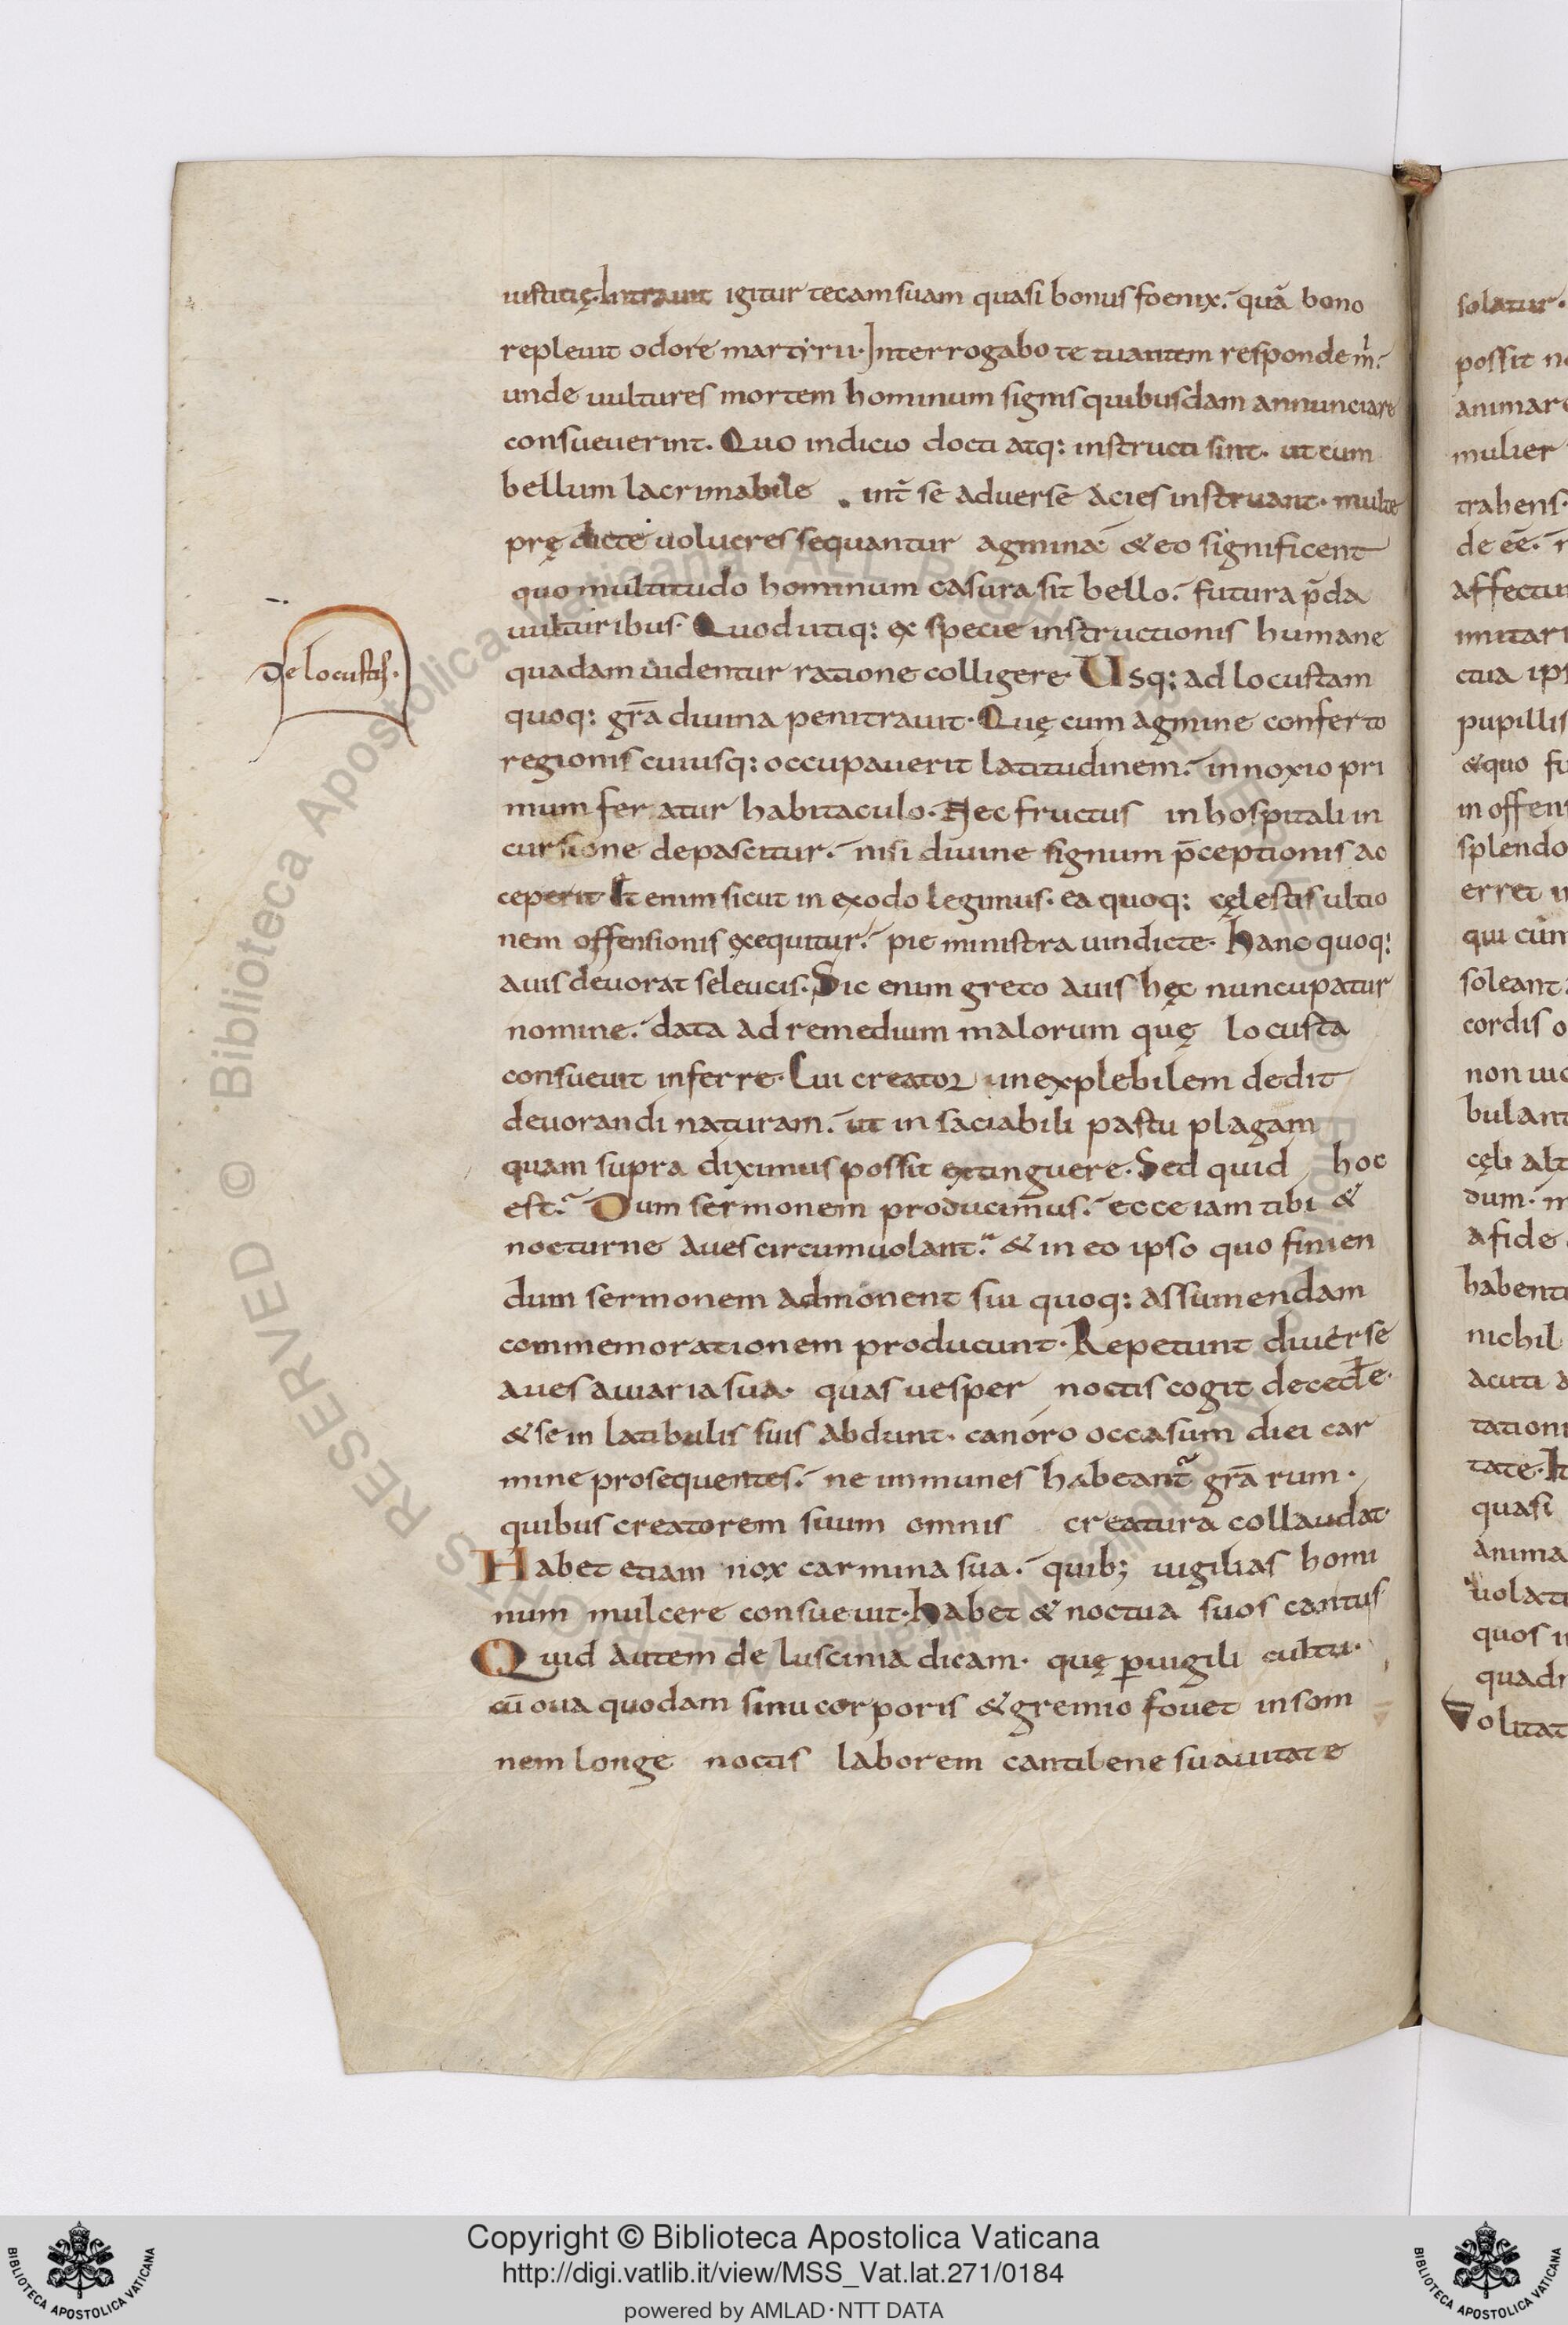 iustitię. Intrauit igitur tecam suam quasi bonus foenix. quā bono
repleuit odore martyrii. Interrogabo te tu autem responde m̄.
unde uultures mortem hominum signis quibusdam annunciare
consueuerint. Quo indicio docti atq: instructi sint. ut cum
bellum lacrimabile . int̄ se aduerse acies instruant. multe
prę dicte uolucres sequantur agmina. & eo significent
quo multitudo hominum casura sit bello. futura p̄da
uulturibus. Quod utiq: ex specie instructionis humane
quadam uidentur ratione colligere. Usq: ad locustam
quoq: gr̄a diuina penitrauit. Quę cum agmine conferto
regionis cuiusq: occupauerit latitudinem. innoxio pri
mum feratur habitaculo. Nec fructus in hospitali in
cursione depascitur. nisi diuine signum p̄ceptionis ac
ceperit Et enim sicut in exodo legimus. ea quoq: cęlestis ultio
nem offensionis exequitur. pie ministra uindicte. Hanc quoq:
auis deuorat seleucis. Sic enim greco auis hęc nuncupatur
nomine. data ad remedium malorum quę locusta
consueuit inferre. Cui creator inexplebilem dedit
deuorandi naturam. ut in saciabili pastu plagam
quam supra diximus possit extinguere. Sed quid hoc
est. Dum sermonem producimus. ecce iam tibi &
nocturne aues circumuolant. & in eo ipso quo finien
dum sermonem admonent sui quoq: assumendam
commemorationem producunt. Repetunt diuerse
aues auiaria sua. quas uesper noctis cogit decedere.
& se in latibulis suis abdunt. canoro occasum diei car
mine prosequentes. ne immunes habeant̄ gr̄a rum.
quibus creatorem suum omnis creatura collaudat.
Habet etiam nox carmina sua. quib; uigilias homi
num mulcere consueuit. Habet & noctua suos cantus
Quid autem de luscinia dicam. quę puigili cultu.
cū oua quodam sinu corporis & gremio fouet insom
nem longe noctis laborem cantilene suauitate
De locustis.
solatur.
possit n
animar
mulier
trahens.
de eē.
affectu
imitari
ctua ip
pupillis
& quo fu
in offen
splendo
erret i
qui cum
soleant
cordis o
non uid
bulant
cęli alt
dum. n
a fide
habent
nichil
acuti a
tation
tate. It
quasi
anima
uolati
quos i
quadr
Volitat
© Biblioteca Apostolica Vaticana ALL RIGHTS RESERVED
Copyright © Biblioteca Apostolica Vaticana
http://digi.vatlib.it/view/MSS_Vat.lat.271/0184
powered by AMLAD·NTT DATA
BIBLIOTECA APOSTOLICA VATICANA
BIBLIOTECA APOSTOLICA VATICANA